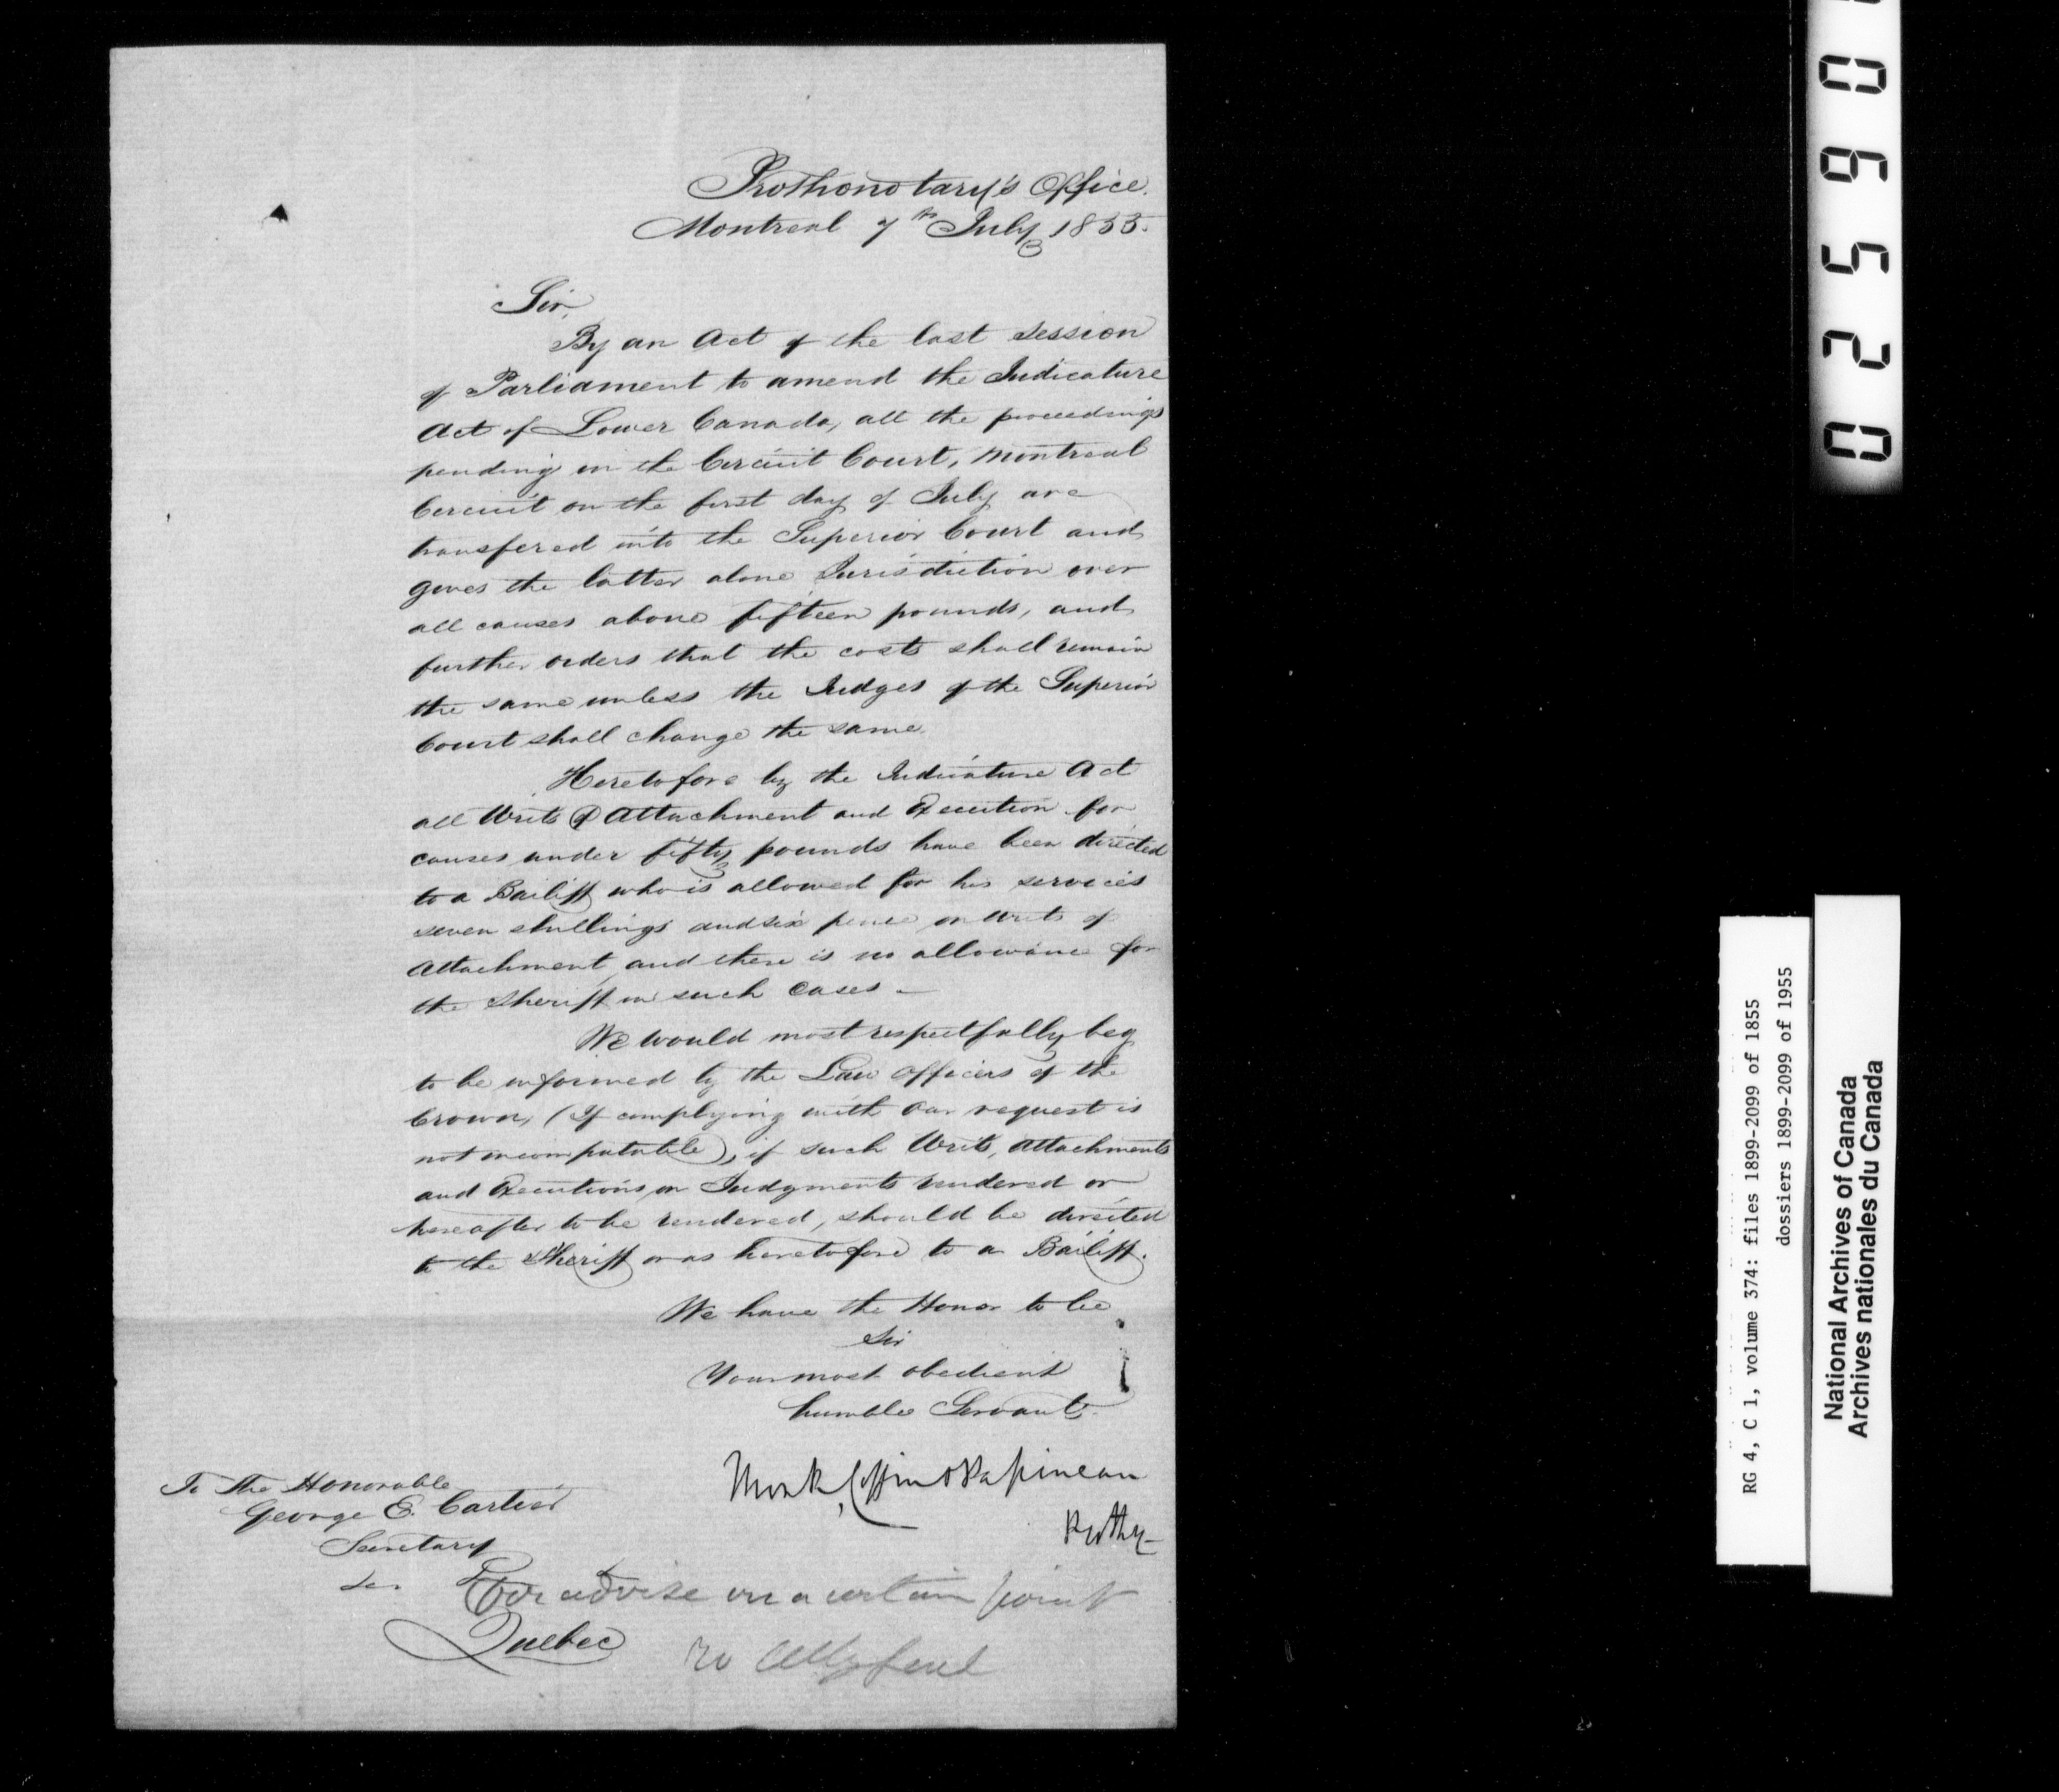 Prothonotary's Office.
Montreal 7th July 1855.
Sir,
By an Act of the last Session
of Parliament to amend the Judicature
Act of Lower Canada, all the proceedings
pending in the Circuit Court, Montreal
Circuit on the first day of July are
transfered into the Superior Court and
gives the latter alone Jurisdiction over
all causes above fifteen pounds, and
further orders that the costs shall remain
the same unless the Judges of the Superior
Court shall change the same.
Heretofore by the Judicature Act
all Writs of Attachment and Execution for
causes under fifty pounds have been directed
to a Bailiff who is allowed for his services
seven shillings and six pence on Writs of
Attachment and there is no allowance for
the Sheriff in such Cases -
We would most respectfully beg
to be informed by the Law Officers of the
Crown, (If complying with our request is
not incompatible), if such Writs, Attachments
and Executions on Judgments rendered or
hereafter to be rendered, should be directed
to the Sheriff or as heretofore to a Bailiff.
We have the Honor to be
Sir
Your most obedient
humble Servants
Monk, Coffin & Papineau
Prothy
To the Honorable
George E. Cartier
Secretary
&c.
Quebec
For advise on a certain point
to Atty Genl
025901
RG 4, C 1, volume 374: files 1899-2099 of 1855
dossiers 1899-2099 of 1955
National Archives of Canada
Archives nationales du Canada